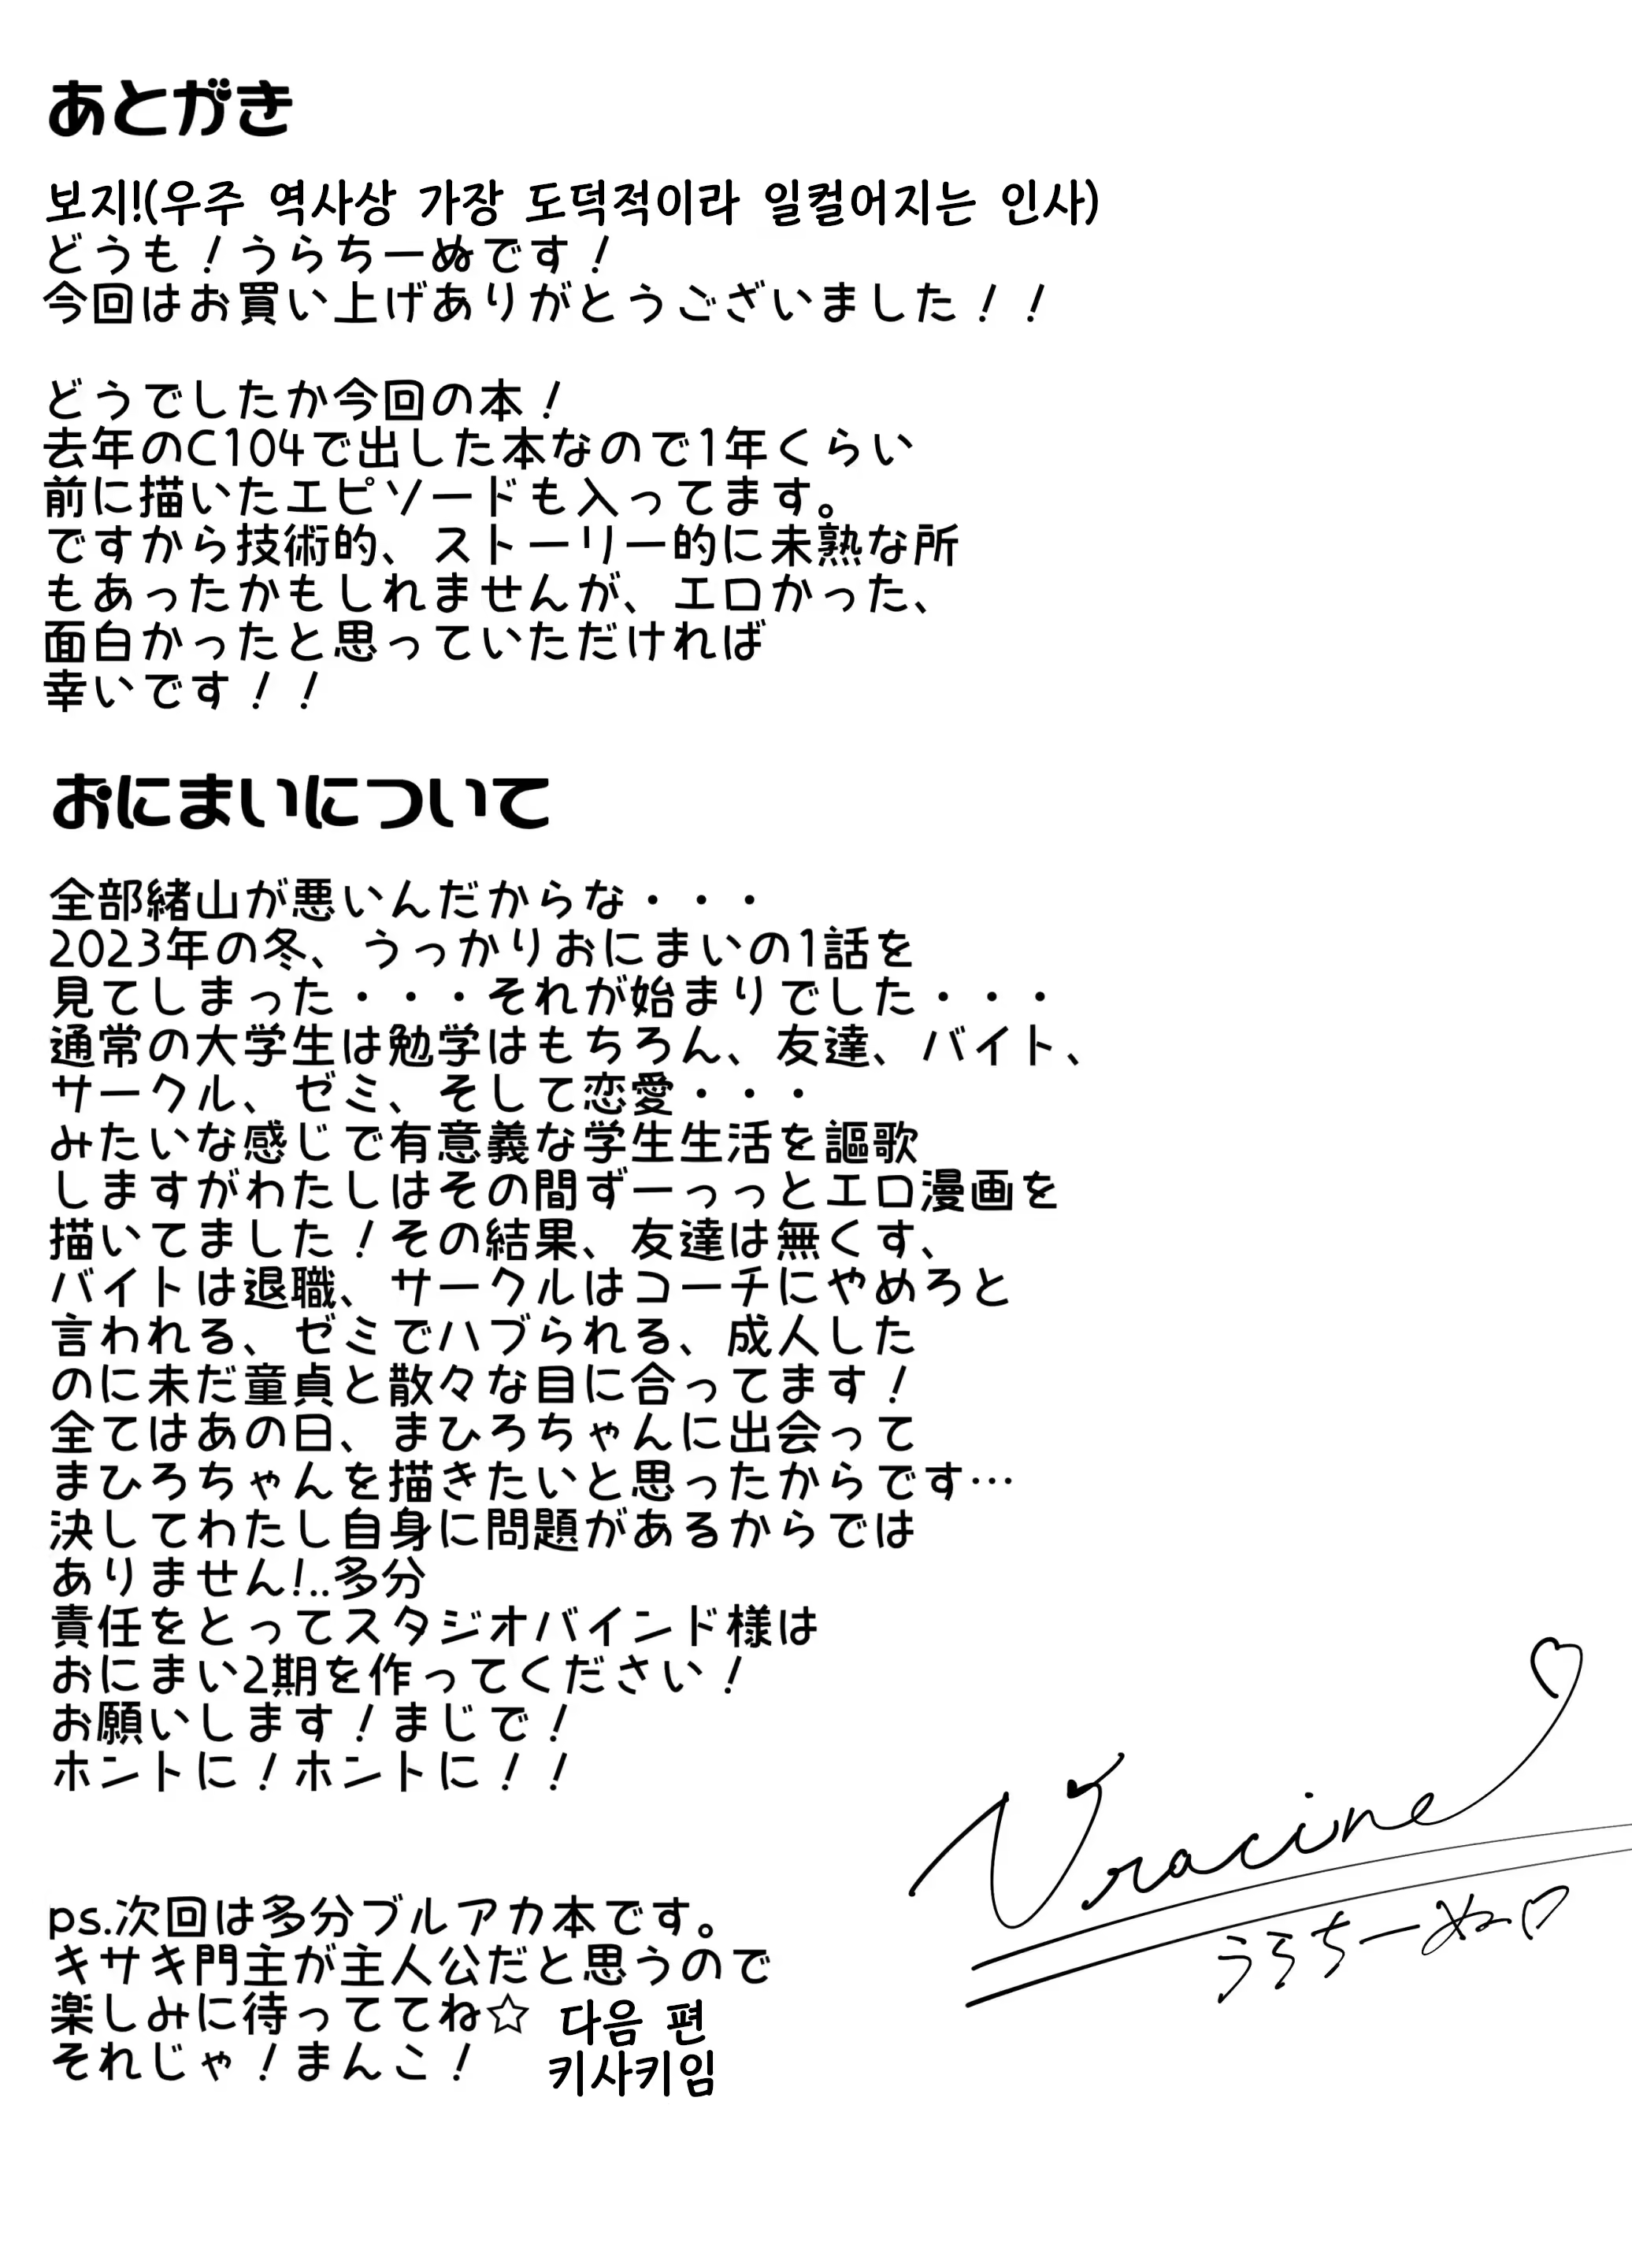 あとがき
보지!(우주 역사상 가장 도덕적이라 일컬어지는 인사)
どうも！うらちーぬです！
今回はお買い上げありがとうございました！！
どうでしたか今回の本！
去年のC104で出した本なので1年くらい
前に描いたエピソードも入ってます。
ですから技術的、ストーリー的に未熟な所
もあったかもしれませんが、エロかった、
面白かったと思っていただければ
幸いです！！
おにまいについて
全部緒山が悪いんだからな・・・
2023年の冬、うっかりおにまいの1話を
見てしまった・・・それが始まりでした・・・
通常の大学生は勉学はもちろん、友達、バイト、
サークル、ゼミ、そして恋愛・・・
みたいな感じで有意義な学生生活を謳歌
しますがわたしはその間ずーっっとエロ漫画を
描いてました！その結果、友達は無くす、
バイトは退職、サークルはコーチにやめろと
言われる、ゼミでハブられる、成人した
のに未だ童貞と散々な目に合ってます！
全てはあの日、まひろちゃんに出会って
まひろちゃんを描きたいと思ったからです…
決してわたし自身に問題があるからでは
ありません!..多分
責任をとってスタジオバインド様は
おにまい2期を作ってください！
お願いします！まじで！
ホントに！ホントに！！
Uracine
うらちーぬ♡
ps.次回は多分ブルアカ本です。
キサキ門主が主人公だと思うので
楽しみに待っててね☆
それじゃ！まんこ！
다음 편
키사키임